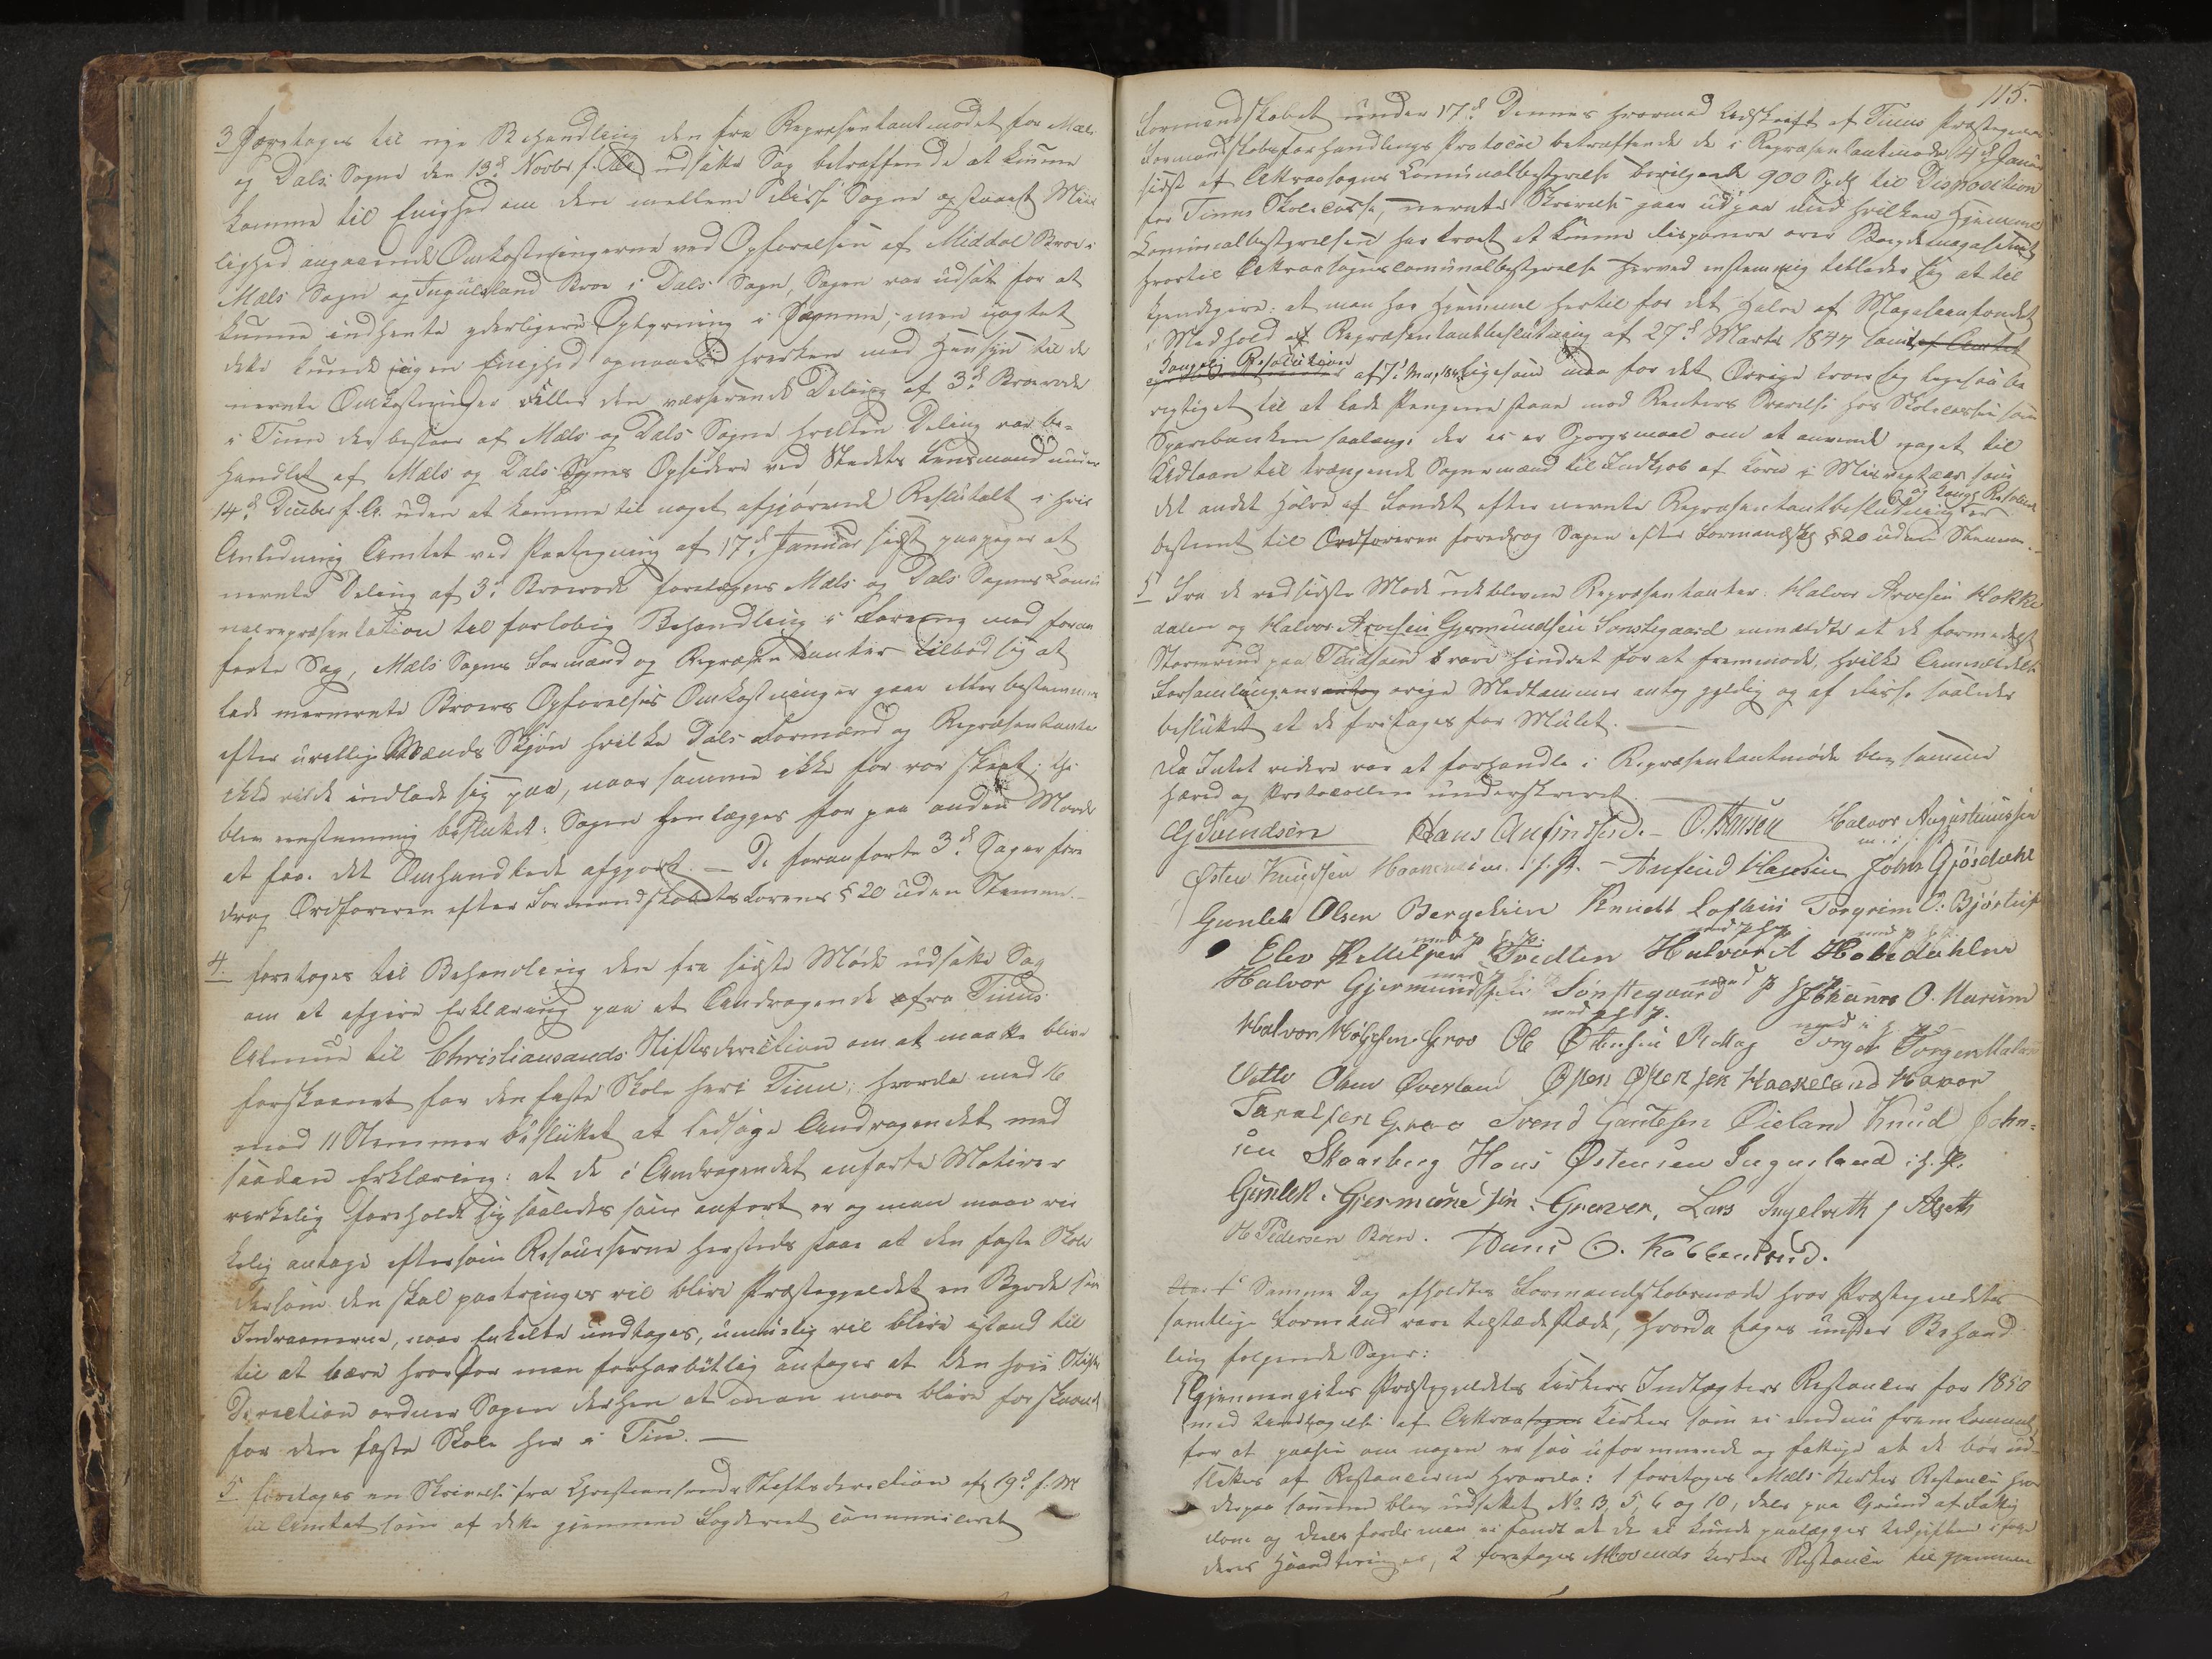 3 Foretages til nye Behandling den fra Repræsentantmødet for Mæls
og Dals Sogne den 13de Novbr f. A. udsatte Sag betræffende at kunne
komme til Enighed om den mellem disse Sogne opstaaet Mis
lighed angaaende Omkostningerne ved Opførelsen af Middøl Broe i
Mæls Sogn og Ingulsland Broe i Dals Sogn, Sagen var udsat for at
kunne indhente yderligere Oplysning i Samme, men uagtet
dette kunde ingen Enighed opnaaes hverken med Hensyn til de
nevnte Omkostninger eller den værserende Deling af 3de Broerode
i Tinn der bestaar af Mæls og Dals Sogne hvilken Deling var be-
handlet af Mæls og Dals Sognes Opsidere ved Stedets Lensmand under
14de Decmber f. A. uden at komme til noget afgjørende Resultatt i hvis
Anledning Amtet ved Paategning af 17de Januar sidst paapeger at
nevnte Deling af 3de Broerode forelægges Mæls og Dals Sognes Comu
nalrepræsentation til forløbig Behandling i Forening med foran
førte Sag, Mæls Sogns Formænd og Repræsentanter tilbød sig at
lade mernevnte Broers Opførelses Omkostninger gaae eller bestemmes
efter uvillige Mænds Skjøn hvilke Dals Formænd og Repræsentanter
ikke vilde indlade sig paa, naar samme ikke før var skeet; thi
blev eenstemmig besluttet: Sagen henlægges for paa anden Maade
at faa det Omhandlede afgjort. — De foranførte 3de Sager fore
drog Ordføreren efter Formandskabets Lovens § 20 uden Stemme. —
4 foretages til Behandling den fra sidste Møde udsatte Sag
om at afgive Erklæring paa et Andragende fra Tinns
Almue til Christiansands Stiftsdirection om at maatte blive
forskaanet for den faste Skole her i Tinn; hvorda med 16
mod 11 Stemmer besluttet at ledsage Andragendet med
saadan Erklæring: at de i Andragendet anførte Motiver
virkelig forholde sig saaledes som anført er og man maae vir
kelig antage eftersom Resourserne hersteds staae at den faste Skole
dersom den skal paatvinges vil blive Præstegjeldet en Byrde som
Indvaanerne, naar Enkelte undtages, umuelig vil blive istand til
til at bære hvorfor man forhaabentlig antages at den høie Stifts
Direction ordner Sagen derhen at man maae blive forskaanet
for den faste Skole her i Tin. —
5 foretages en Skrivelse fra Christiansands Stiftsdirection af 19de f. M.
til Amtet som af dette gjennem Fogderiet communiceret
115.
Formandskabet under 17de Dennes hvormed Udskrift af Tinns Præstegjelds
Formandskabsforhandlings Protocol betræffende de i Repræsentantmøde 4de Januar
sidst af Attraasogns Comunalbestyrelse bevilgede 900 Spd til Disposition
for Tinns Skolecasse, nevnte Skrivelse gaar ud paa med hvilken Hjemmel
Comunalbestyrelsen har troet at kunne disponere over Bøygdemagasinet
hvortil Attraasognscomunalbestyrelse herved enstemmig tillader sig at til
kjendegive: at man har Hjemmel hertil for det halve af Magasinfondet
i Medhold af Repræsentantbeslutning af 27de Marts 1847 samt af Amtet
Kongelig Resolution af 7de Mai 184 ligesom man for det Øvrige troer sig ligesaa be
rigtiget til at lade Pengene staae mod Renters Svarelse hos Skolecassen som
Sparebanken saalænge der ei er Spørgsmaal om at anvende noget til
Udlaan til trængende Sognemænd til Indkjøb af Korn i Misvextaar som
det andet halve af Fondet efter nevnte Repræsentantbeslutning og Kongl. Resolution er
bestemt til Ordføreren foredrog Sagen efter Formandskbl § 20 uden Stemme. —
5 Fra de ved sidste Møde udeblevne Repræsentanter: Halvor Arvesen Hakke
dalen og Halvor Arvesen Gjermundsen Sønstegaard anmældte at de formedelst
Stormvind paa Tindsøen vare hindret for at fremmøde, hvilke Anmældelse
Forsamlingens antog øvrige Medlemmer antog gyldig og af disse saaledes
besluttet at de fritages for Mulct. —
Da Intet videre var at forhandle i Repræsentantmøde blev samme
hævet og Protocollen underskrevet
G Svendsen Hans Anfindsen. — O. Hansen Halvor Augustinussen
Østen Knudsen Haakenæs m. i. h. P. — Anfind Hansen John Gjøsdahl
Gunlek Olsen Bergelien Knudt Loftsen Torgrim O: Bjørtuft
Elev Kittelsen Tvedten Halvor A Hakedahlen
med P
Halvor Gjermundsen Sønstegaard Johannes O. Marum
Halvor Helgesen Grao Ole Østensen Rollag Torger Torgersen
Vetle Olsen Øverland Østen Østensen Haakeland Havor
Taralsen Graa Svend Gautesen Øieland Knud John-
sen Skaarberg Hans Østensen Ingulsland i. h. P.
Gunlek Gjermundsen Graver, Lars Ingelveth Alseth
H Pedersen Bøen. Hans O. Kabbenrud.
Aar f Samme Dag afholdtes Formandskabsmøde hvor Præstegjeldets
samtlige Formænd vare tilstæde, hvorda toges under Behand
ling følgende Sager:
1 gjennemgikes Præstegjeldets Kirkers Indtægters Restancer for 1850
med Undtagelse af Attraasogns Kirker som ei endnu fremkommet
for at paasee om nogen er saa uformuende og fattige at de bør ud
slettes af Restancerne hvorda: 1 foretages Mæls Kirkes Restance hvor
der paa samme blev udslettet No 3, 5, 6 og 10, deels paa Grund af Fattig
dom og deels fordi man ei fandt at de ei kunde paalægges Udgiften ifølge
deres Haandteringer, 2 foretages Movinds Kirkes Restance til gjennem